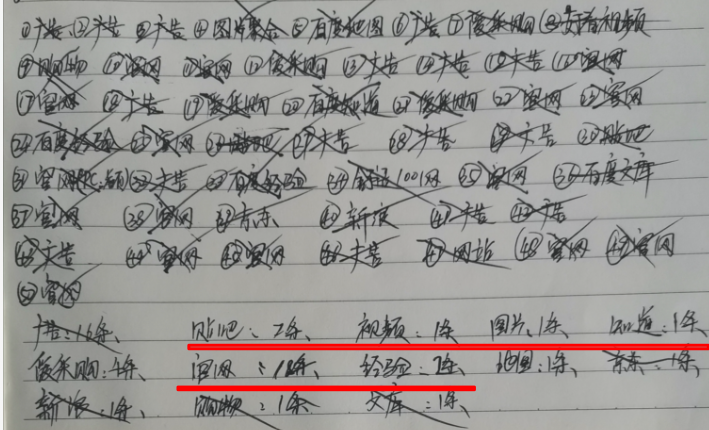 ①广告 ②广告 ③广告 ④图片聚合 ⑤百度地图 ⑥广告 ⑦爱采购 ⑧好看视频
⑨购物 ⑩官网 ⑪官网 ⑫爱采购 ⑬广告 ⑭广告 ⑮广告 ⑯官网
⑰官网 ⑱广告 ⑲爱采购 ⑳百度知道 ㉑爱采购 ㉒官网 ㉓官网
㉔百度经验 ㉕官网 ㉖贴吧 ㉗广告 ㉘广告 ㉙广告 ㉚贴吧
㉛官网 ㉜广告 ㉝百度经验 ㉞1001网 ㉟官网 ㊱百度文库
㊲官网 ㊳官网 ㊴京东 ㊵新浪 ㊶广告 ㊷广告
㊸广告 ㊹官网 ㊺官网 ㊻广告 ㊼网站 ㊽官网 ㊾官网
㊿官网
广告:16条、 贴吧:2条、 视频:1条 图片:1条、 知道:1条、
爱采购:4条、 官网:18条、 经验:2条、 地图:1条、 京东:1条、
新浪:1条、 购物:1条、 文库:1条、